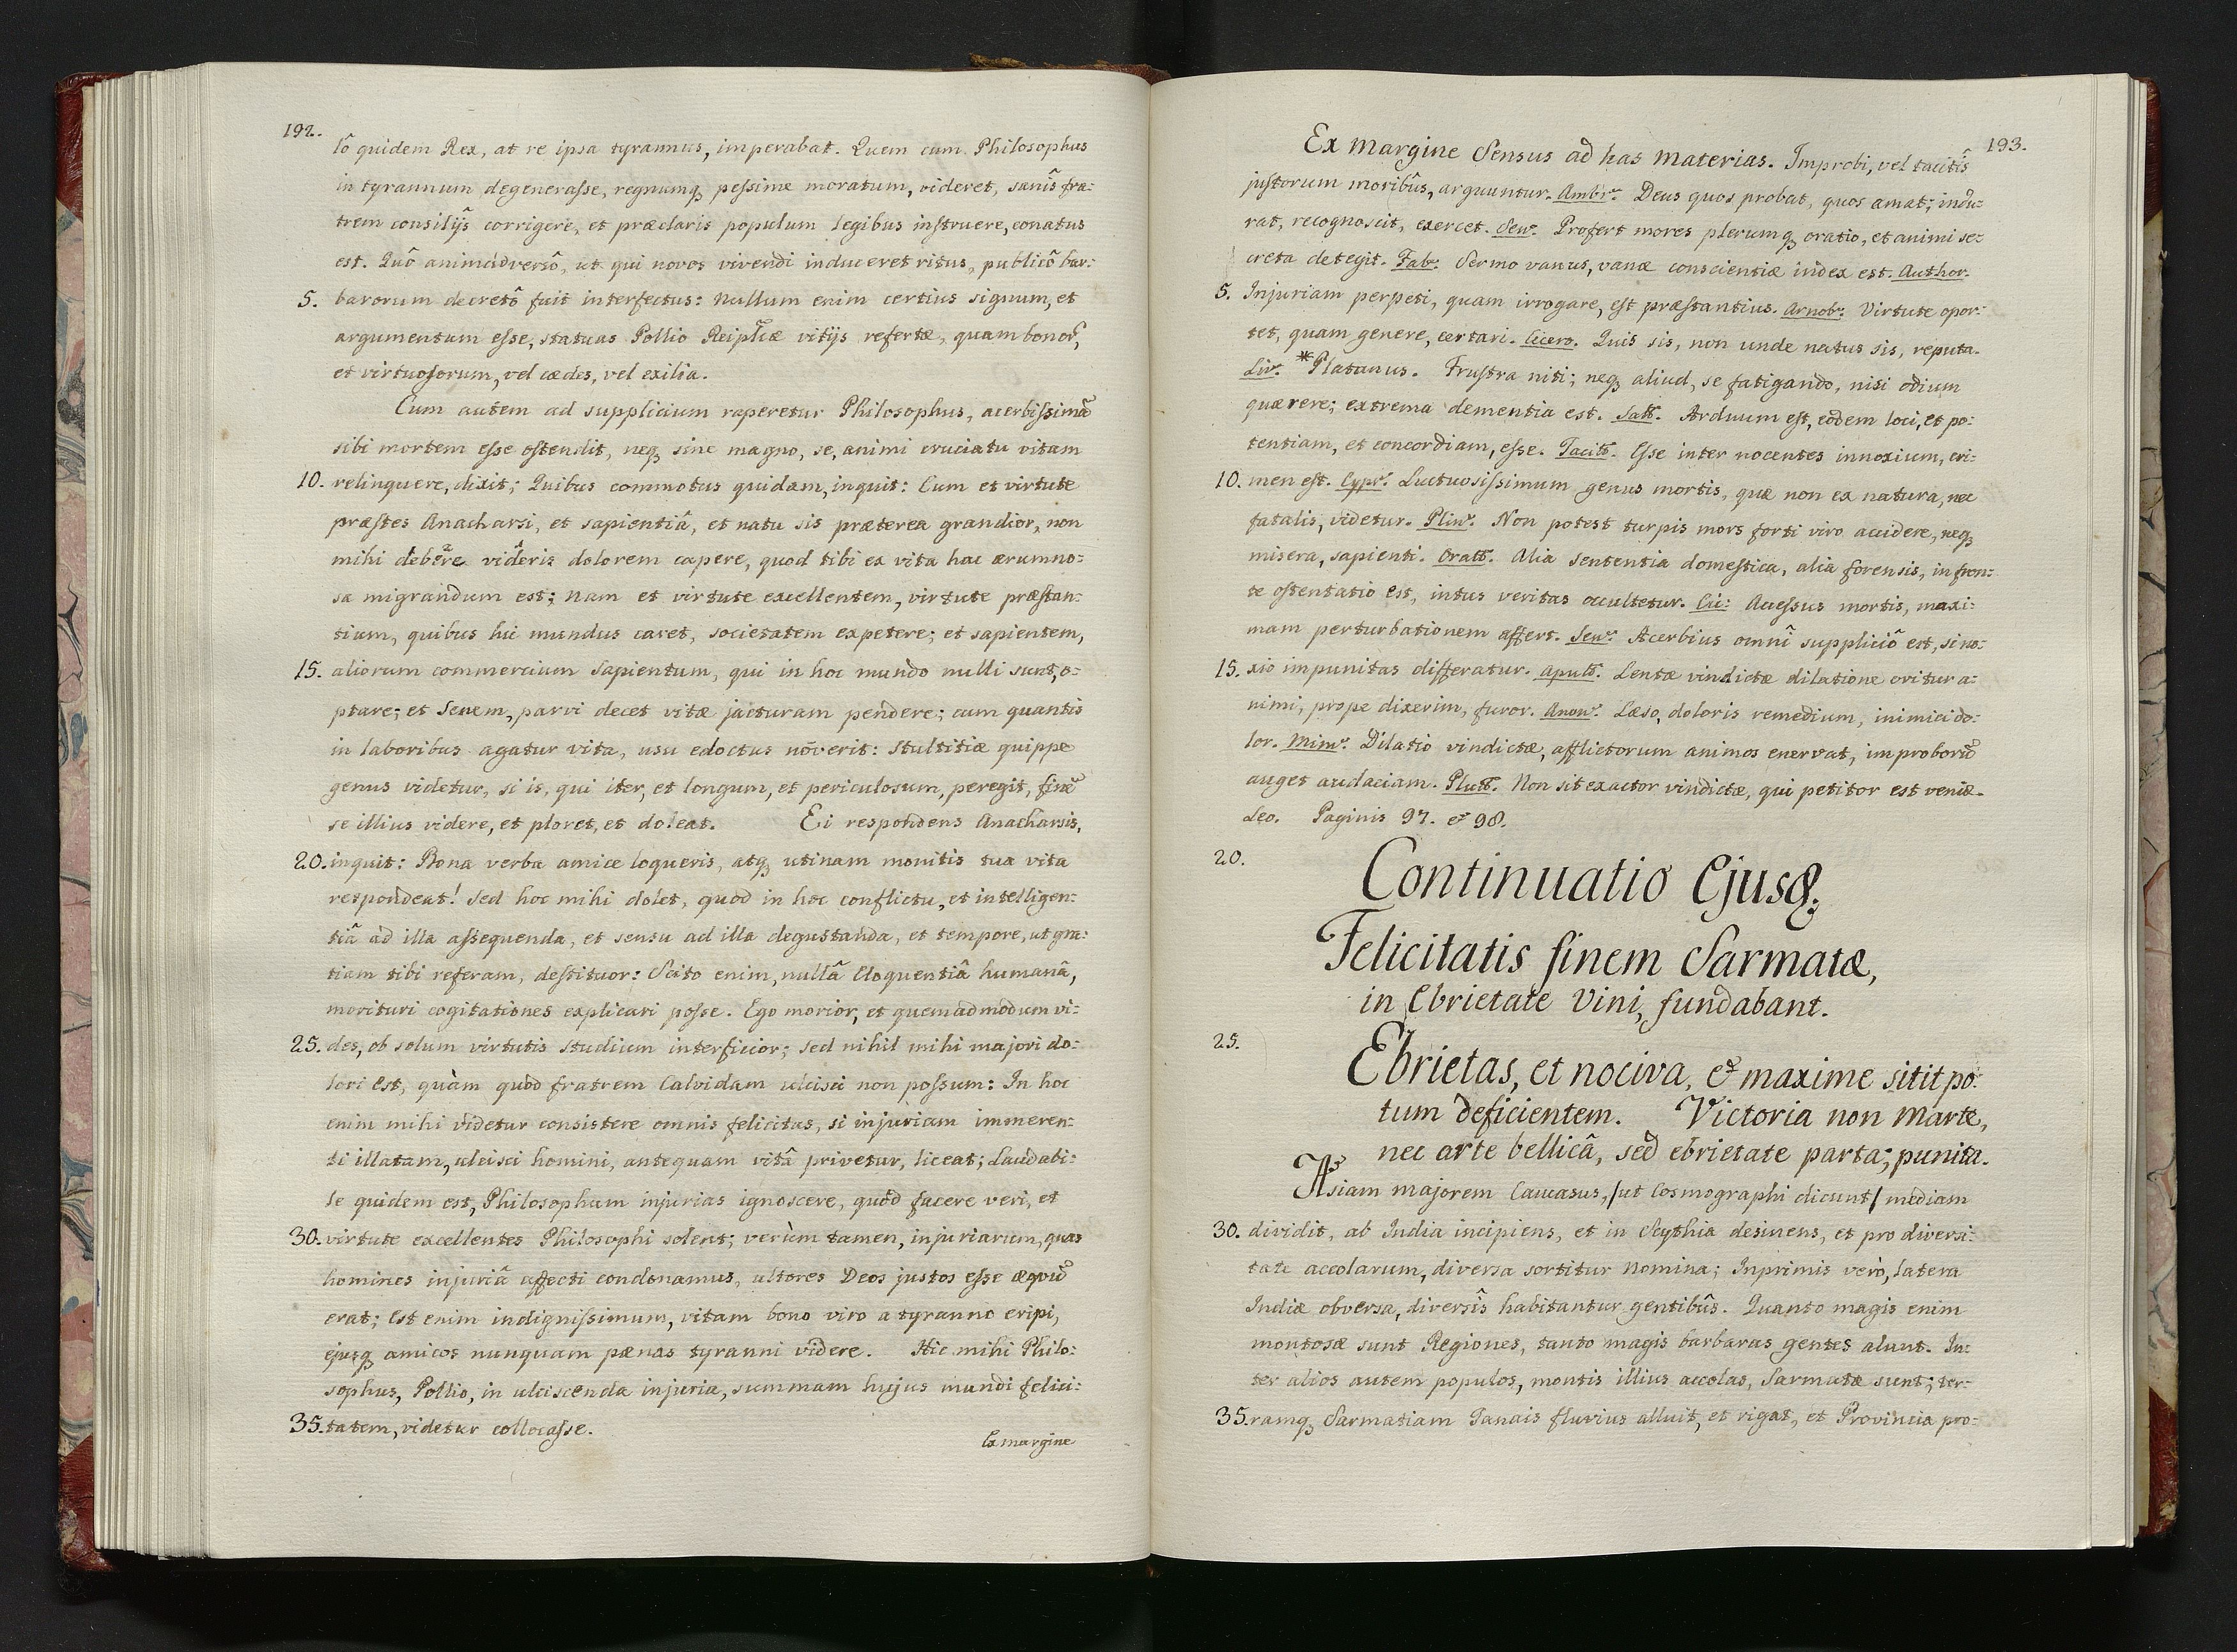 192.
lô quidem Rex, at re ipsa tyrannus, imperabat. Quem cum Philosophus
in tyrannum degenerasse, regnumq, pessime moratum, videret, sanîs fra:
trem consilijs corrigere, et præclaris populum legibus instruere, conatus
est. Quô animadversô, ut qui novos vivendi induceret ritus, publicô bar:
5. barorum decretô fuit interfectus: nullum enim certius signum, et
argumentum esse, statuas Pollio Reiplicæ vitijs refertæ, quam bonor̃,
et virtuosorum, vel cædes, vel exilia.
Cum autem ad supplicium raperetur Philosophus, acerbissimã
sibi mortem esse ostendit, neq, sine magno, se, animi cruciatu vitam
10. relinquere, dixit; Quibus commotus quidam, inquit: Cum et virtute
præstes Anacharsi, et sapientiâ, et natu sis præterea grandior, non
mihi debere videris dolorem capere, quod tibi ex vita hac ærumno:
sa migrandum est; nam et virtute excellentem, virtute præstan:
tium, quibus hic mundus caret, societatem expetere; et sapientem,
15. aliorum commercium sapientum, qui in hoc mundo nulli sunt, o-
ptare; et Senem, parvi decet vitæ jacturam pendere; cum quantis
in laboribus agatur vita, usu edoctus nôverit: Stultitiæ quippe
genus videtur, si is, qui iter, et longum, et periculosum, peregit, finẽ
se illius videre, et ploret, et doleat. Ei respondens Anacharsis,
20. inquit: Bona verba amice loqueris, atq, utinam monitis tua vita
respondeat! Sed hoc mihi dolet, quod in hoc conflictu, et intelligen:
tiâ ad illa assequenda, et sensu ad illa degustanda, et tempore, ut gra:
tiam tibi referam, destituor: Scito enim, nullâ Eloquentiâ humanâ,
morituri cogitationes explicari posse. Ego morior, et quemadmodum vi:
25. des, ob solum virtutis studium interficior; sed nihil mihi majori do:
lori est, quàm quòd fratrem Calvidam ulcisci non possum: In hoc
enim mihi videtur consistere omnis felicitas, si injuriam immeren:
ti illatam, ulcisci homini, antequam vitâ privetur, liceat; Laudabi:
le quidem est, Philosophum injurias ignoscere, quòd facere veri, et
30. virtute excellentes Philosophi solent; verùm tamen, injuriarum, quas
homines injuriâ affecti condonamus, ultores Deos justos esse æquũ
erat; Est enim indignissimum, vitam bono viro a tyranno eripi,
ejusq, amicos nunquam pænas tyranni videre. Hic mihi Philo:
sophus, Pollio, in ulciscenda injuria, summam hujus mundi felici:
35. tatem, videtur collocasse.
Ex margine
193.
Ex margine Sensus ad has materias. Improbi, vel tacitîs
justorum moribûs, arguuntur. Ambrs. Deus quos probat, quos amat; indu:
rat, recognoscit, exercet. Sens. Profert mores plerumq, oratio, et animi se:
creta detegit. Fab: Sermo vanus, vanæ conscientiæ index est. Author.
5. Injuriam perpeti, quam irrogare, est præstantius. Arnobs. Virtute opor:
tet, quam genere, certari. Cicero. Quis sis, non unde natus sis, reputa.
Livs. *Platanus. Frustra niti; neq, aliud, se fatigando, nisi odium
quærere; extrema dementia est. Salts. Arduum est, eodem loci, et po:
tentiam, et concordiam, esse. Tacits. Esse inter nocentes innoxium, cri:
10. men est. Cyprs. Luctuosissimum genus mortis, quæ non ex natura, nec
fatalis, videtur. Plins. Non potest turpis mors forti viro accidere, neq,
misera, sapienti. Orats. Alia sententia domestica, alia forensis, in fron:
te ostentatio est, intus veritas occultetur. Cic: Accessus mortis, maxi:
mam perturbationem affert. Sens. Acerbius omnî suppliciô est, si no:
15. xio impunitas differatur. Apults. Lentæ vindictæ dilatione oritur a:
nimi, prope dixerim, furor. Anons. Læso, doloris remedium, inimici do:
lor. Mims. Dilatio vindictæ, afflictorum animos enervat, improborũ
auget audaciam. Pluts. Non sit exactor vindictæ, qui petitor est veniæ.
Leo. Paginis 97. et 98.
20.
Continuatio Ejusd:
Felicitatis finem Sarmatæ,
in Ebrietate Vini, fundabant.
25.
Ebrietas, et nociva, et maxime sitit po:
tum deficientem. Victoria non Marte,
nec arte bellicâ, sed ebrietate parta; punita.
Asiam majorem Caucasus, /ut Cosmographi dicunt/ mediam
30. dividit, ab India incipiens, et in Scythia desinens, et pro diversi:
tate accolarum, diversa sortitur nomina; Inprimis verò, latera
Indiæ obversa, diversîs habitantur gentibûs. Quanto magis enim
montosæ sunt Regiones, tanto magis barbaras gentes alunt. In:
ter alios autem populos, montis illius accolas, Sarmatæ sunt; ter:
35. ramq, Sarmatiam Tanais fluvius alluit, et rigat, et Provincia pro: